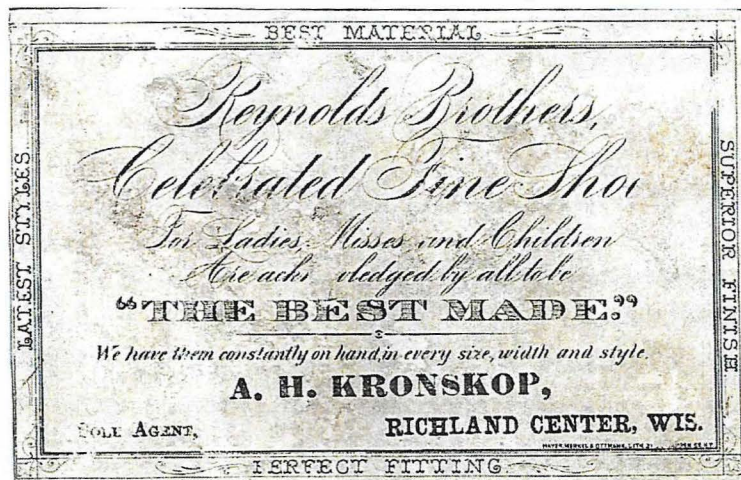 BEST MATERIAL
LATEST STYLES
SUPERIOR FINISH
Reynolds Brothers,
Celebrated Fine Shoe
For Ladies, Misses and Children
Are ackn wledged by all to be
"THE BEST MADE."
We have them constantly on hand, in every size, width and style.
A. H. KRONSKOP,
SOLE AGENT,
RICHLAND CENTER, WIS.
MAYER, MERKEL & OTTMANN, LITH.
PERFECT FITTING